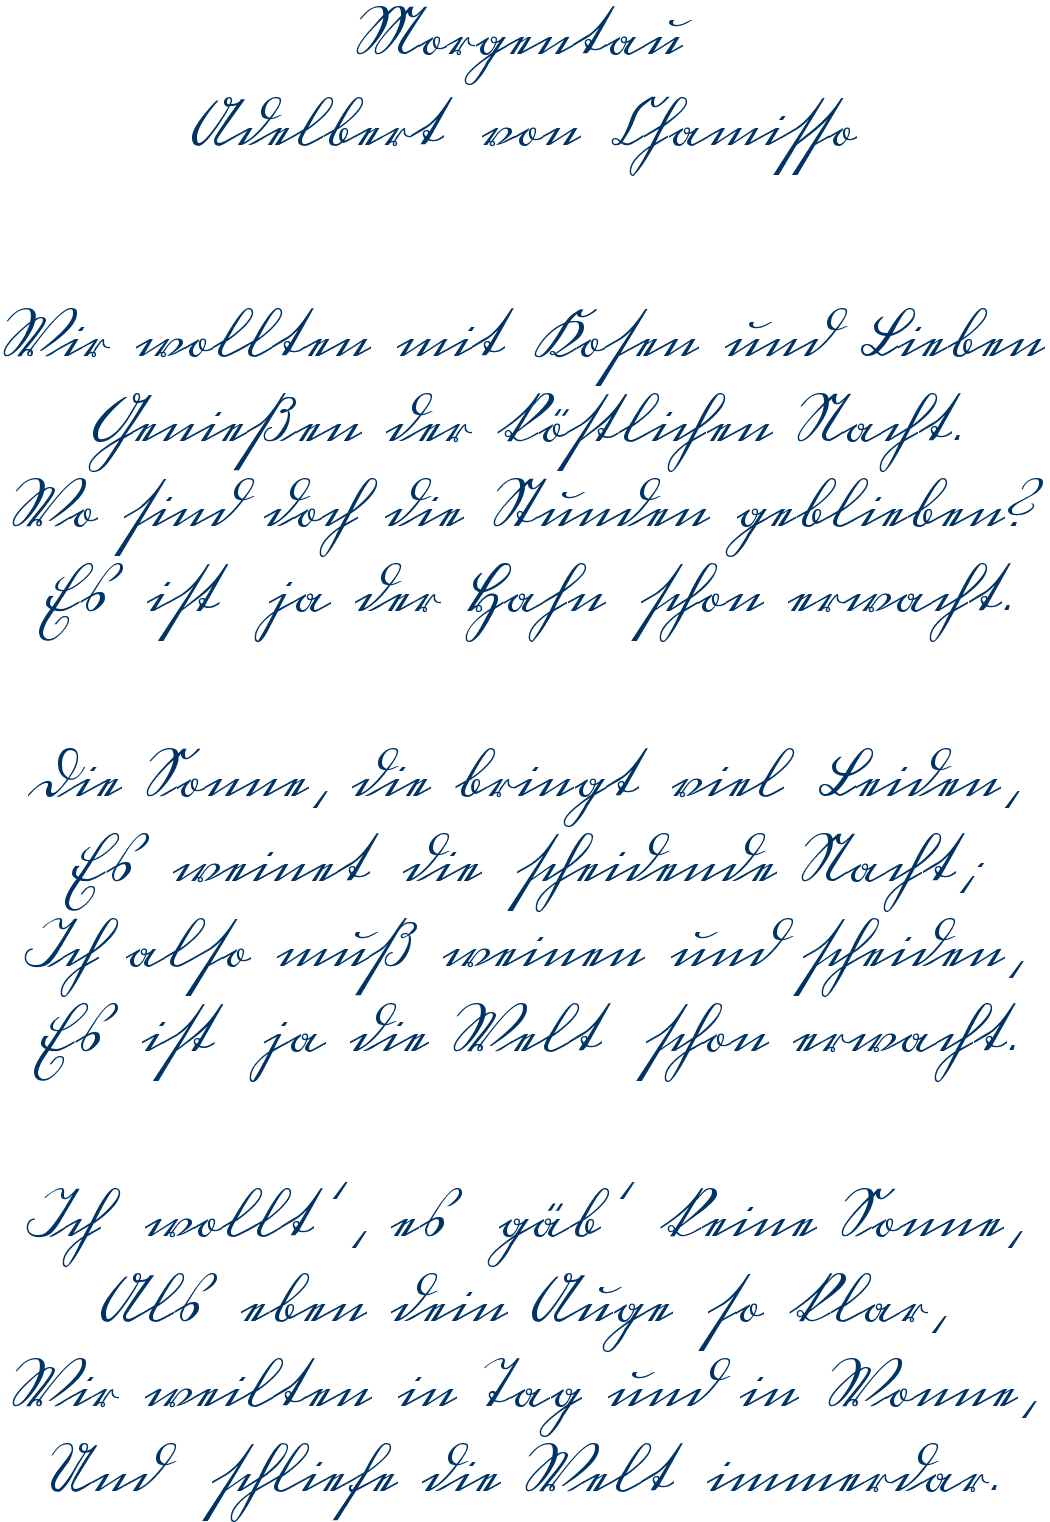 Morgentau
Adelbert von Chamisso
Wir wollten mit Kosen und Lieben
Genießen der köstlichen Nacht.
Wo sind doch die Stunden geblieben?
Es ist ja der Hahn schon erwacht.
Die Sonne, die bringt viel Leiden,
Es weinet die scheidende Nacht;
Ich also muß weinen und scheiden,
Es ist ja die Welt schon erwacht.
Ich wollt', es gäb' keine Sonne,
Als eben dein Auge so klar,
Wir weilten in Tag und in Wonne,
Und schliefe die Welt immerdar.